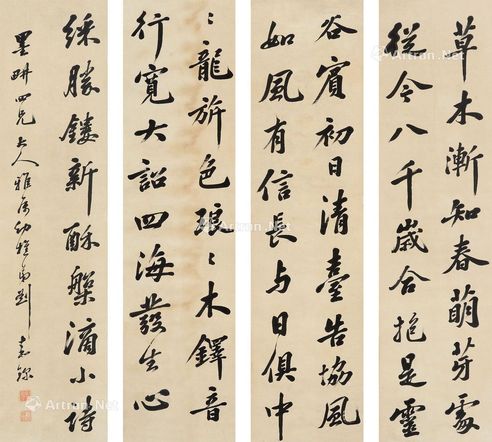 草木漸知春萌芽處
從今八千歲合抱是靈
谷賓初日清臺告協風
如風有信長与日俱中
〻龍旂色琅〻木鐸音
行寬大詔四海發生心
綵勝鏤新酥槃滴小詩
墨畊四兄大人雅屬幼樵弟劉嘉琛
Artron.Net